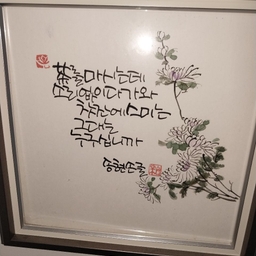 茶를마시는데
소리없이다가와
찻잔에스미는
그대는
누구십니까
송현손글